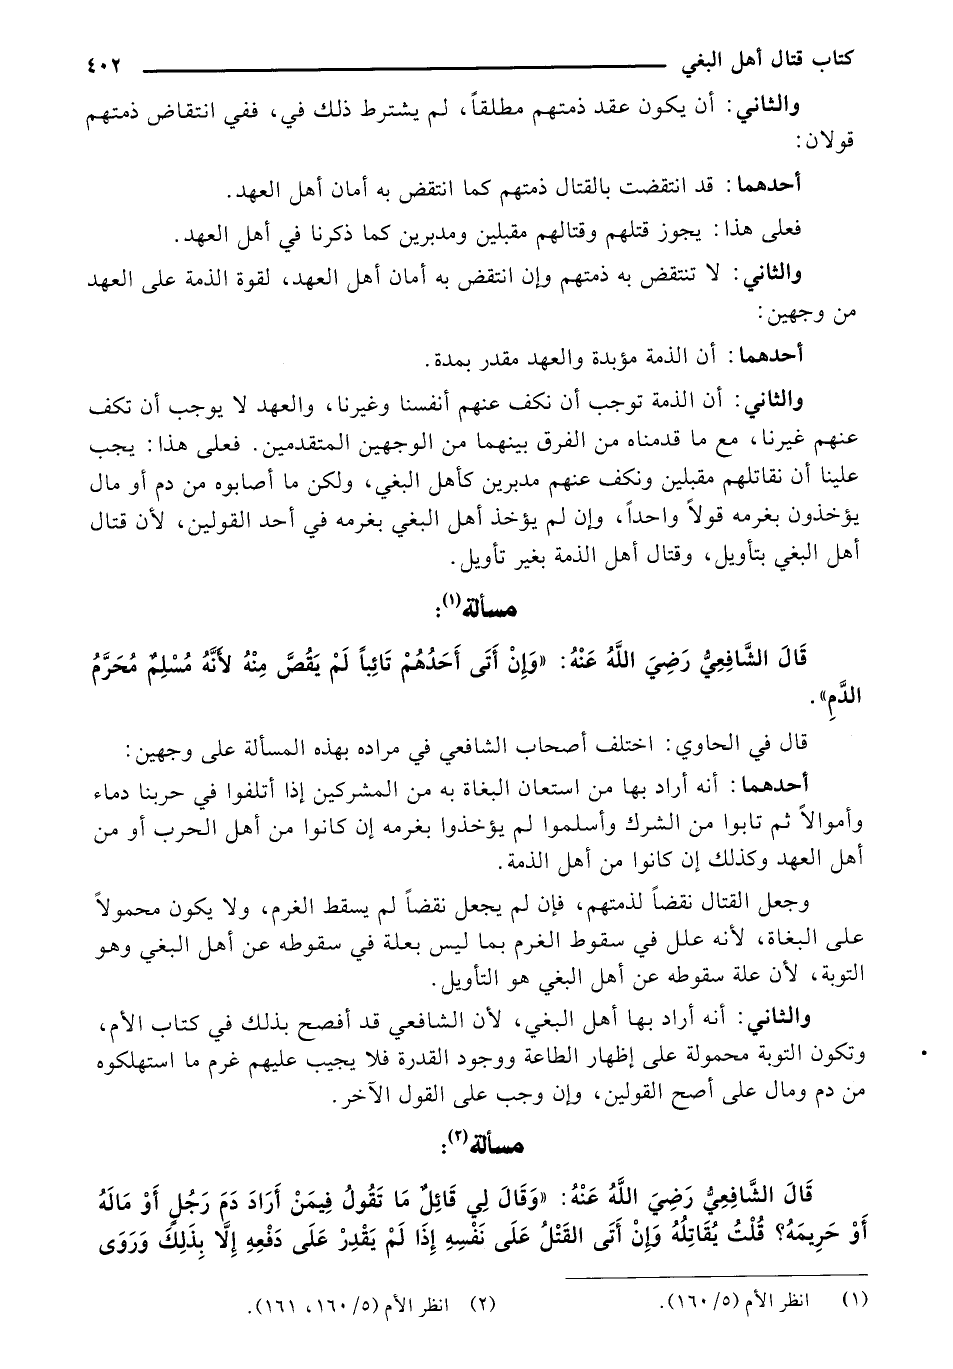 كتاب قتال أهل البغي ـــــــــــــــــــــــــــــ ٤٠٢
والثاني: أن يكون عقد ذمتهم مطلقاً، لم يشترط ذلك في، ففي انتقاض ذمتهم
قولان:
أحدهما: قد انتقضت بالقتال ذمتهم كما انتقض به أمان أهل العهد.
فعلى هذا: يجوز قتلهم وقتالهم مقبلين ومدبرين كما ذكرنا في أهل العهد.
والثاني: لا تنتقض به ذمتهم وإن انتقض به أمان أهل العهد، لقوة الذمة على العهد
من وجهين:
أحدهما: أن الذمة مؤبدة والعهد مقدر بمدة.
والثاني: أن الذمة توجب أن نكف عنهم أنفسنا وغيرنا، والعهد لا يوجب أن تكف
عنهم غيرنا، مع ما قدمناه من الفرق بينهما من الوجهين المتقدمين. فعلى هذا: يجب
علينا أن نقاتلهم مقبلين ونكف عنهم مدبرين كأهل البغي، ولكن ما أصابوه من دم أو مال
يؤخذون بغرمه قولاً واحداً، وإن لم يؤخذ أهل البغي بغرمه في أحد القولين، لأن قتال
أهل البغي بتأويل، وقتال أهل الذمة بغير تأويل.
مسألة(١):
قَالَ الشَّافِعِيُّ رَضِيَ اللَّهُ عَنْهُ: «وَإِنْ أَتَى أَحَدُهُمْ تَائِباً لَمْ يَقُصَّ مِنْهُ لأَنَّهُ مُسْلِمٌ مُحَرَّمُ
الدَّمِ».
قال في الحاوي: اختلف أصحاب الشافعي في مراده بهذه المسألة على وجهين:
أحدهما: أنه أراد بها من استعان البغاة به من المشركين إذا أتلفوا في حربنا دماء
وأموالاً ثم تابوا من الشرك وأسلموا لم يؤخذوا بغرمه إن كانوا من أهل الحرب أو من
أهل العهد وكذلك إن كانوا من أهل الذمة.
وجعل القتال نقضاً لذمتهم، فإن لم يجعل نقضاً لم يسقط الغرم، ولا يكون محمولاً
على البغاة، لأنه علل في سقوط الغرم بما ليس بعلة في سقوطه عن أهل البغي وهو
التوبة، لأن علة سقوطه عن أهل البغي هو التأويل.
والثاني: أنه أراد بها أهل البغي، لأن الشافعي قد أفصح بذلك في كتاب الأم،
وتكون التوبة محمولة على إظهار الطاعة ووجود القدرة فلا يجيب عليهم غرم ما استهلكوه
من دم ومال على أصح القولين، وإن وجب على القول الآخر.
مسألة(٢):
قَالَ الشَّافِعِيُّ رَضِيَ اللَّهُ عَنْهُ: «وَقَالَ لِي قَائِلٌ مَا تَقُولُ فِيمَنْ أَرَادَ دَمَ رَجُلٍ أَوْ مَالَهُ
أَوْ حَرِيمَهُ؟ قُلْتُ يُقَاتِلُهُ وَإِنْ أَتَى القَتْلُ عَلَى نَفْسِهِ إِذَا لَمْ يَقْدِرْ عَلَى دَفْعِهِ إِلَّا بِذَلِكَ وَرَوَى
(١) انظر الأم (٥/ ١٦٠). (٢) انظر الأم (٥/ ١٦٠، ١٦١).